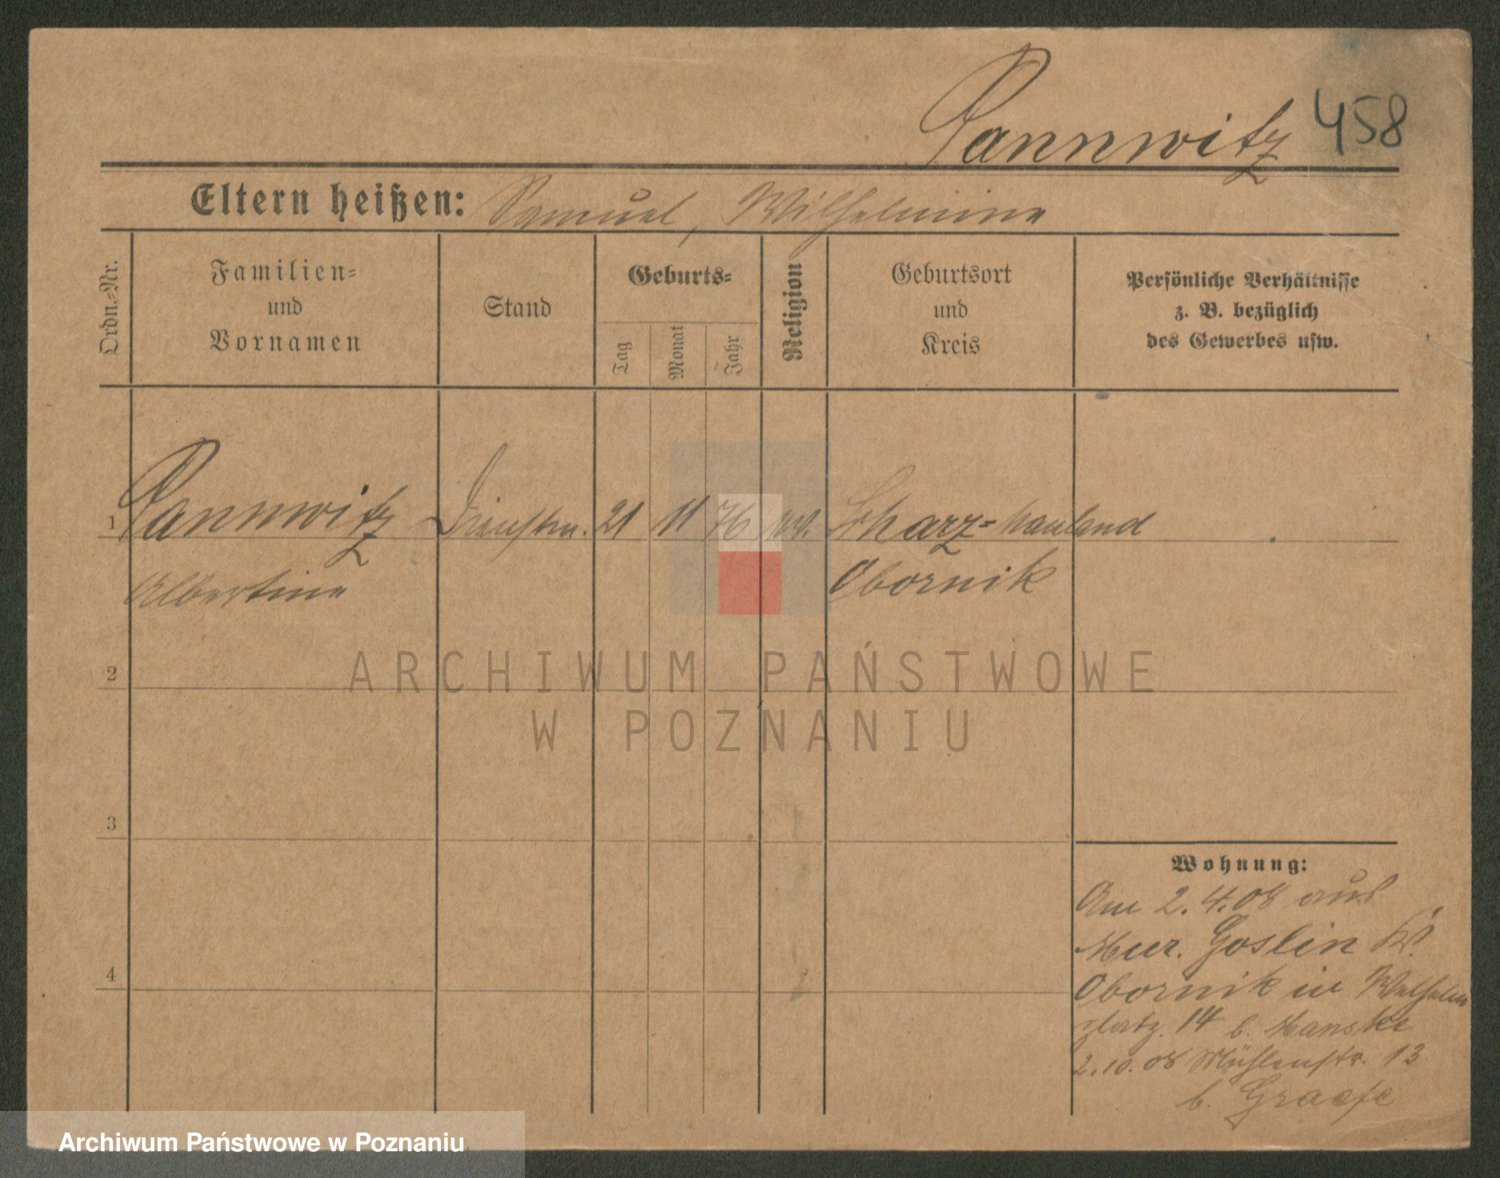 Pannwitz 458
Eltern heißen: Samuel, Wilhelmine
Ordn.-Nr.
Familien-
und
Vornamen
Stand
Geburts-
Tag
Monat
Jahr
Religion
Geburtsort
und
Kreis
Persönliche Verhältnisse
z. B. bezüglich
des Gewerbes usw.
1 Pannwitz Dienstm. 21 11 76 ev. Scharz-hauland
Albertine Obornik
2
ARCHIWUM PAŃSTWOWE
W POZNANIU
3
4
Wohnung:
Am 2.4.08 aus
Mur. Goslin Kr.
Obornik in Wilhelm
platz. 14 b. Manske
2.10.08 Mühlenstr. 13
b. Graefe
Archiwum Państwowe w Poznaniu